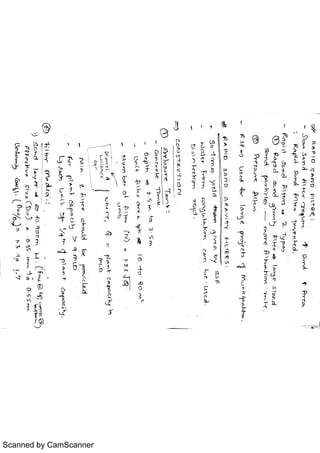 # RAPID SAND FILTER:
- Slow Sand Filter require ↑ Sand ↑ Area
; Rapid Sand Filter invented
- Rapid sand filters → 2 Types
① Rapid sand gravity Filter → large sized
sand particles more filtration rate.
② Pressure Filters.
- RSF → used for large projects & Municipalities.
# RAPID SAND GRAVITY FILTERS:
- 30 times yield than given by SSF
- Water from coagulation can be used
- Disinfection reqd.
⇒ CONSTRUCTION
① Enclosure Tank:
- Concrete Tank
- Depth → 2.5m to 3.5m
- Unit filter area → 10 to 80 m²
- Number of filter (N) = 1.22 √Q
units
where, Q = plant capacity in
MLD
- Min 2 filter should be provided
- For plant capacity > 9 MLD
↳ each unit → 1/4 th of plant capacity.
② Filter Media:
↳ Sand layer → 60 to 90cm ht.
Effective size (D10) = 0.35 to 0.55mm
Uniformity Coeff. = 1.3 to 1.7
Scanned by CamScanner